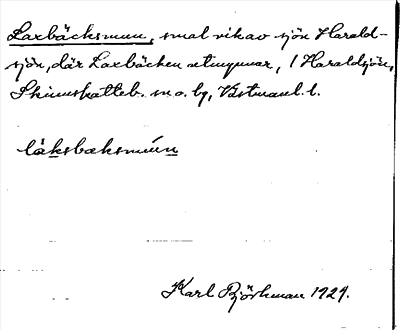 Laxbäcksmun, smal vik av sjön Harald-
sjön, där Laxbäcken utmynnar, i Haraldsjön,
Skinnskatteb. sn o. bg, Västmanl. l.
läksbäksmunn
Karl Björkman 1929.